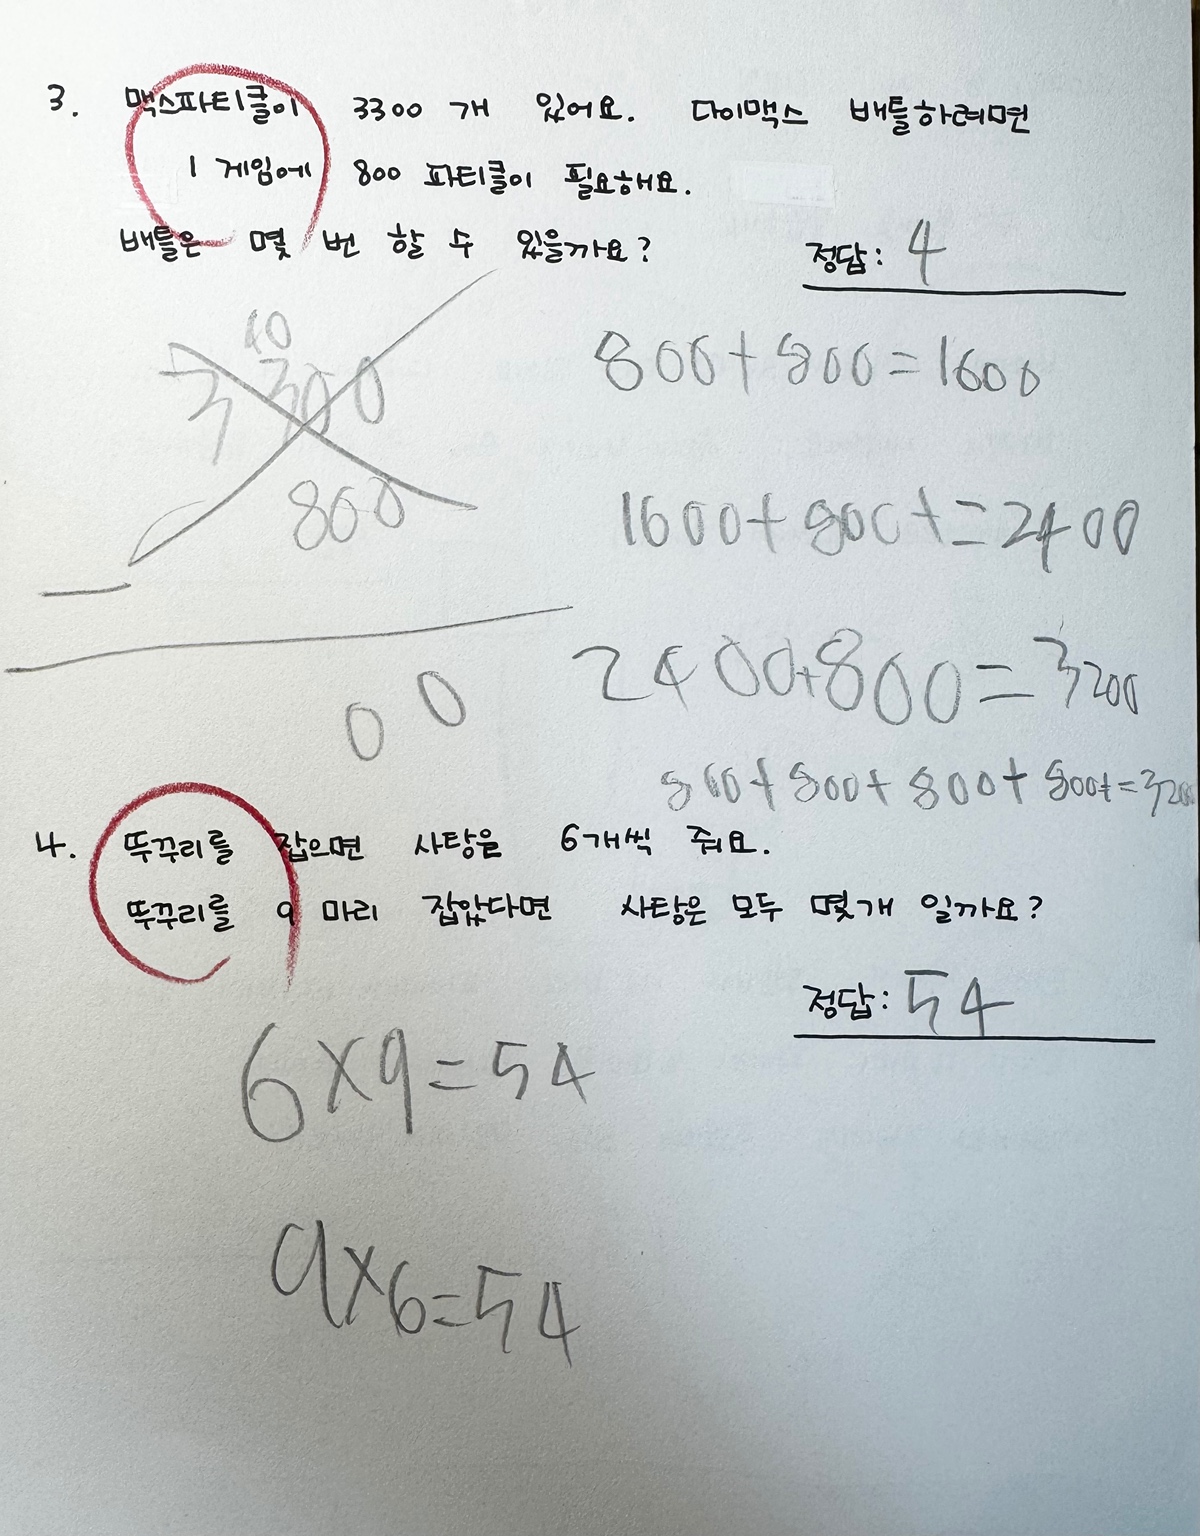 3. 맥스파티클이 3300 개 있어요. 다이맥스 배틀하려면
1 게임에 800 파티클이 필요해요.
배틀은 몇 번 할 수 있을까요?
정답: 4
10
3300
800
00
800+800=1600
1600+800+=2400
2400+800=3200
800+800+800+800+=3200
4. 뚜꾸리를 잡으면 사탕을 6개씩 줘요.
뚜꾸리를 9 마리 잡았다면 사탕은 모두 몇개 일까요?
정답: 54
6×9=54
9×6=54